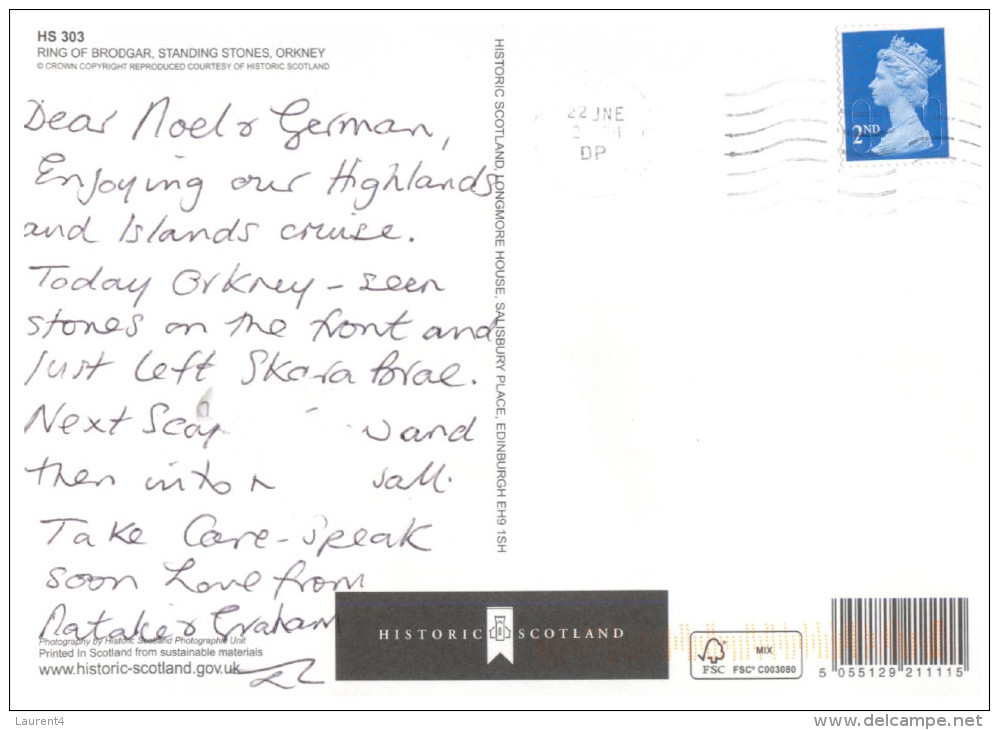 HS 303
RING OF BRODGAR, STANDING STONES, ORKNEY
© CROWN COPYRIGHT REPRODUCED COURTESY OF HISTORIC SCOTLAND
Dear Noel & German,
Enjoying our Highlands
and Islands cruise.
Today Orkney - seen
stones on the front and
just left Skara Brae.
Next Scap and
then into
Take Care - speak
soon Love from
Natalie & Graham
Photography by Historic Scotland Photographic Unit
Printed In Scotland from sustainable materials
www.historic-scotland.gov.uk
HISTORIC SCOTLAND, LONGMORE HOUSE, SALISBURY PLACE, EDINBURGH EH9 1SH
22 JNE
DP
2ND
HISTORIC SCOTLAND
FSC
MIX
FSC® C003080
5 055129 211115
Laurent4
www.delcampe.net